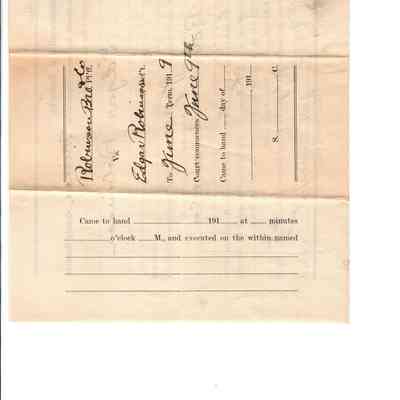 Robinson Bro & Co
Pl'ff.
Vs.
Edgar Robinson
Df.
To June Term, 1919
Court commences June 9th
Came to hand day of
191
S. C.
Came to hand 191 at minutes
o'clock M., and executed on the within named